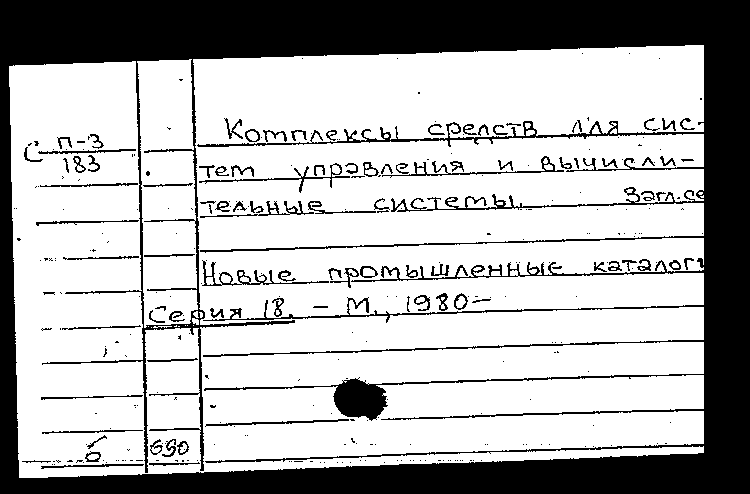 С П-3
183
Комплексы средств для сис-
тем управления и вычисли-
тельные системы. Загл. се
Новые промышленные каталоги
Серия 18. – М., 1980–
б 690